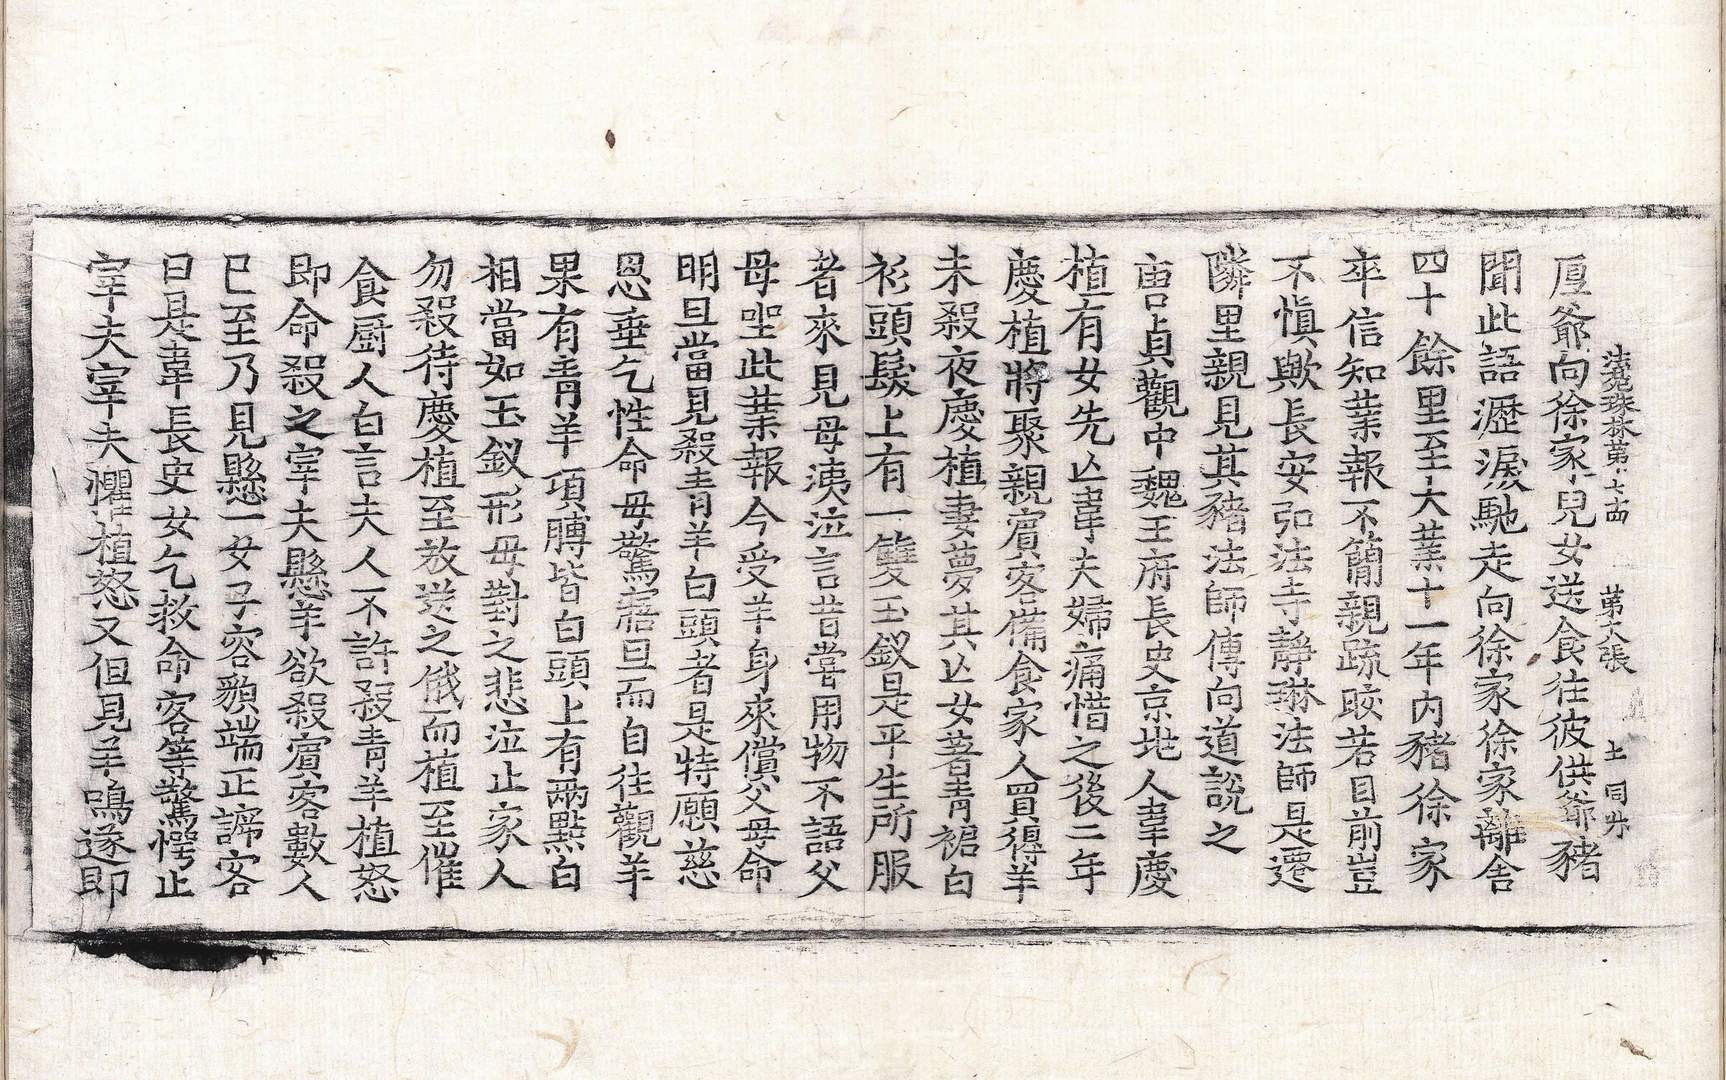 法苑珠林第七十四　第六張　土　同州
厚爺向徐家兒女送食往彼供爺猪
聞此語瀝淚馳走向徐家徐家離舍
四十餘里至大業十一年內豬徐家
卒信知業報不簡親疏皎若目前豈
不慎歟長安弘法寺靜琳法師是遷
隣里親見其豬法師傳向道說之
唐貞觀中魏王府長史京地人韋慶
植有女先亾韋夫婦痛惜之後二年
慶植將聚親賓客備食家人買得羊
未殺夜慶植妻夢其亾女著青裙白
衫頭髮上有一雙玉釵是平生所服
者來見母洟泣言昔嘗用物不語父
母坐此業報今受羊身來償父母命
明旦當見殺青羊白頭者是特願慈
恩垂乞性命母驚寤旦而自往觀羊
果有青羊項膊皆白頭上有兩點白
相當如玉釵形母對之悲泣止家人
勿殺待慶植至放送之俄而植至催
食厨人白言夫人不許殺青羊植怒
即命殺之宰夫懸羊欲殺賓客數人
已至乃見懸一女子容貌端正諦客
曰是韋長史女乞救命客等驚愕止
宰夫宰夫懼植怒又但見羊鳴遂即